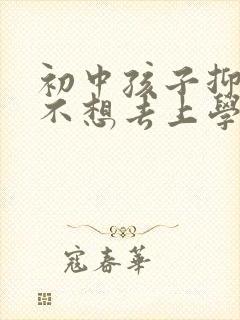 初中孩子抑
不想去上學
寇春華